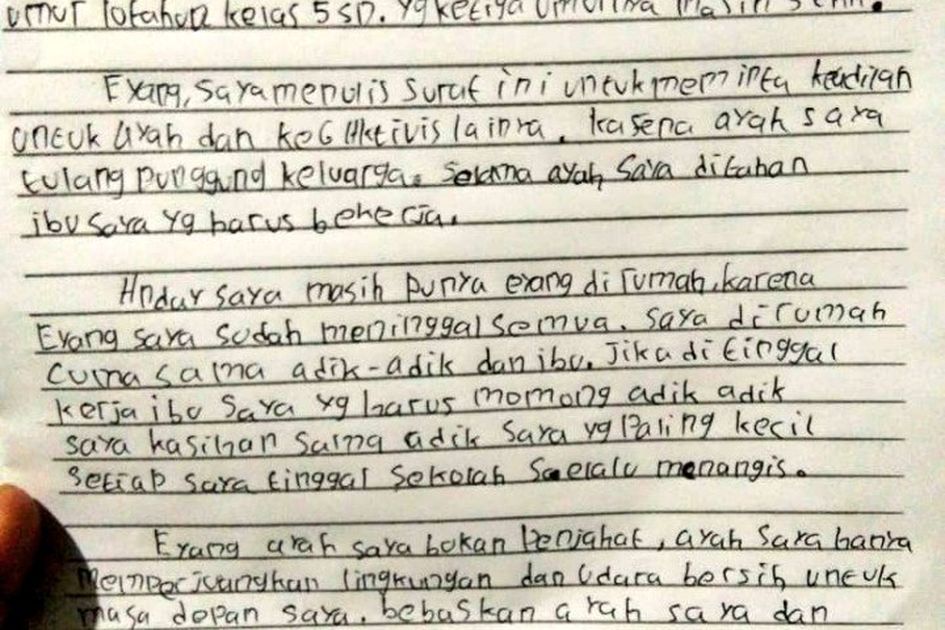 umur 10 tahun kelas 5 SD. yg ketiga umurnya masih
Eyang, saya menulis surat ini untuk meminta keadilan
untuk ayah dan ke 6 Aktivis lainya. karena ayah saya
tulang punggung keluarga. Selama ayah saya ditahan
ibu saya yg harus bekerja.
Anday saya masih punya eyang di rumah, karena
Eyang saya sudah meninggal semua. saya di rumah
cuma sama adik-adik dan ibu. Jika di tinggal
kerja ibu saya yg harus momong adik adik
saya kasihan sama adik saya yg paling kecil
setiap saya tinggal sekolah selalu menangis.
Eyang ayah saya bukan penjahat, ayah saya hanya
memperjuangkan lingkungan dan udara bersih untuk
masa depan saya. bebaskan ayah saya dan